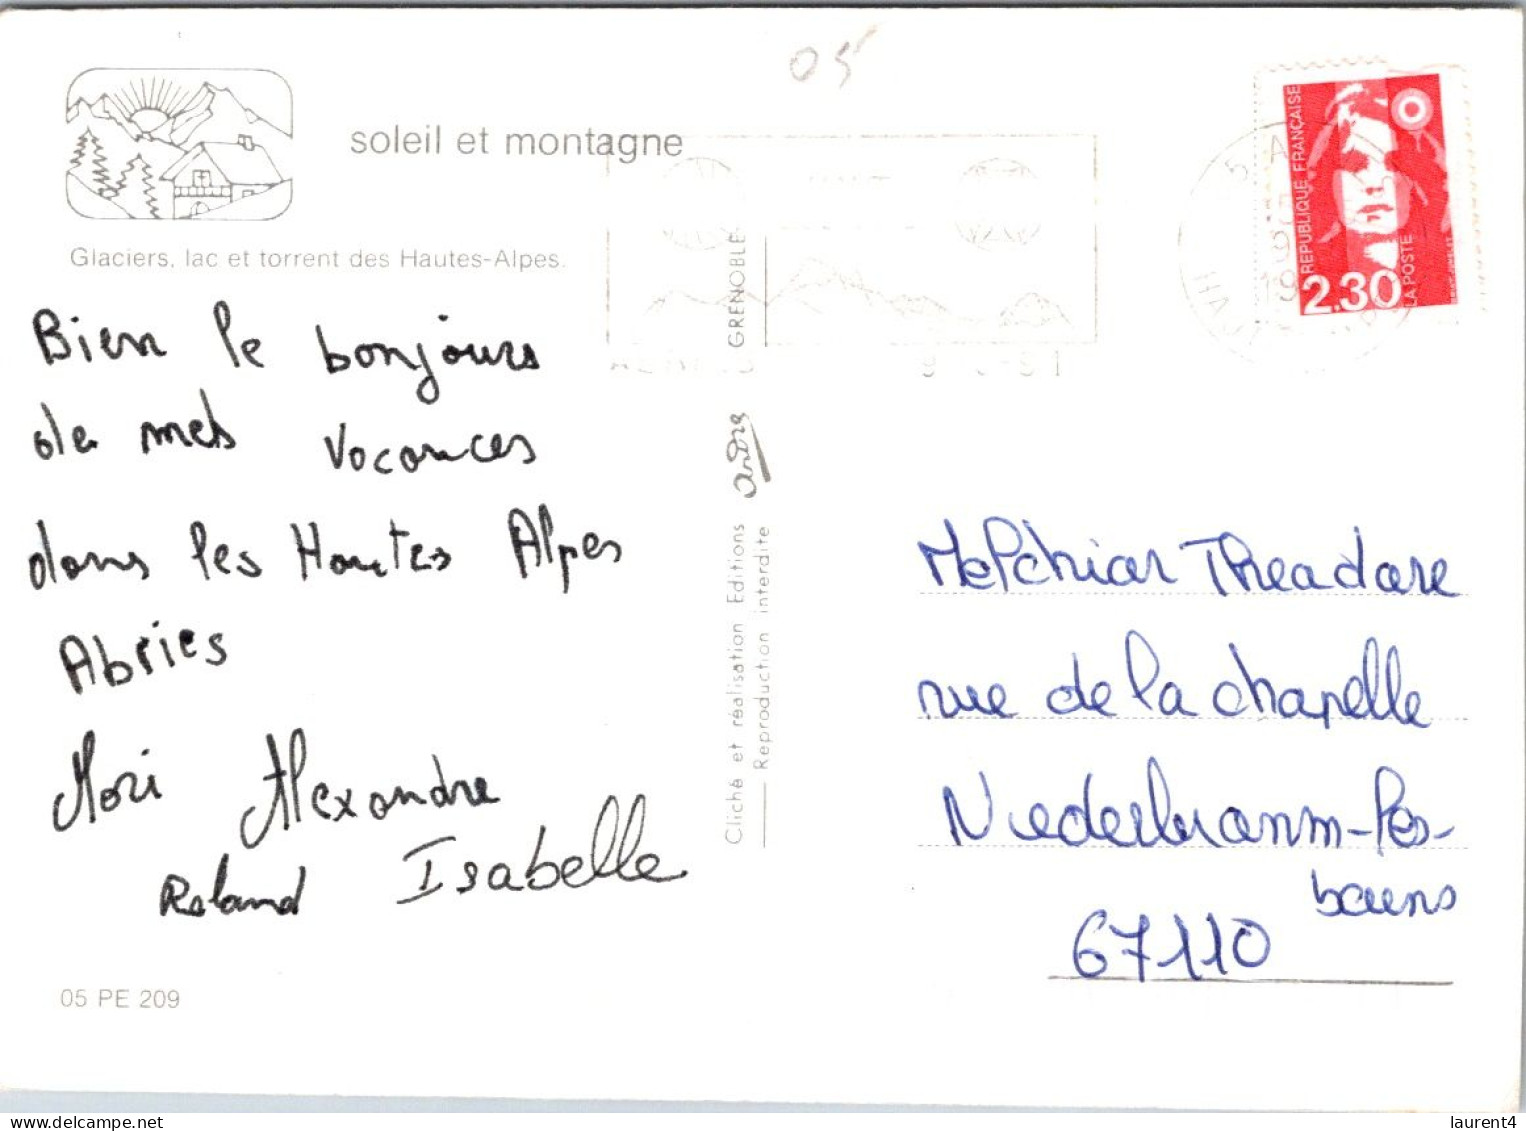 05
soleil et montagne
Glaciers, lac et torrent des Hautes-Alpes.
Bien le bonjours
de mes vacances
dans les Hautes Alpes
Abries
Alexandre
Roland Isabelle
05 PE 209
GRENOBLE
Cliché et réalisation Editions André
Reproduction interdite
RÉPUBLIQUE FRANÇAISE
2,30
LA POSTE
Melchior Theadore
rue de la chapelle
Niederbronn-les-
bains
67110
laurent4